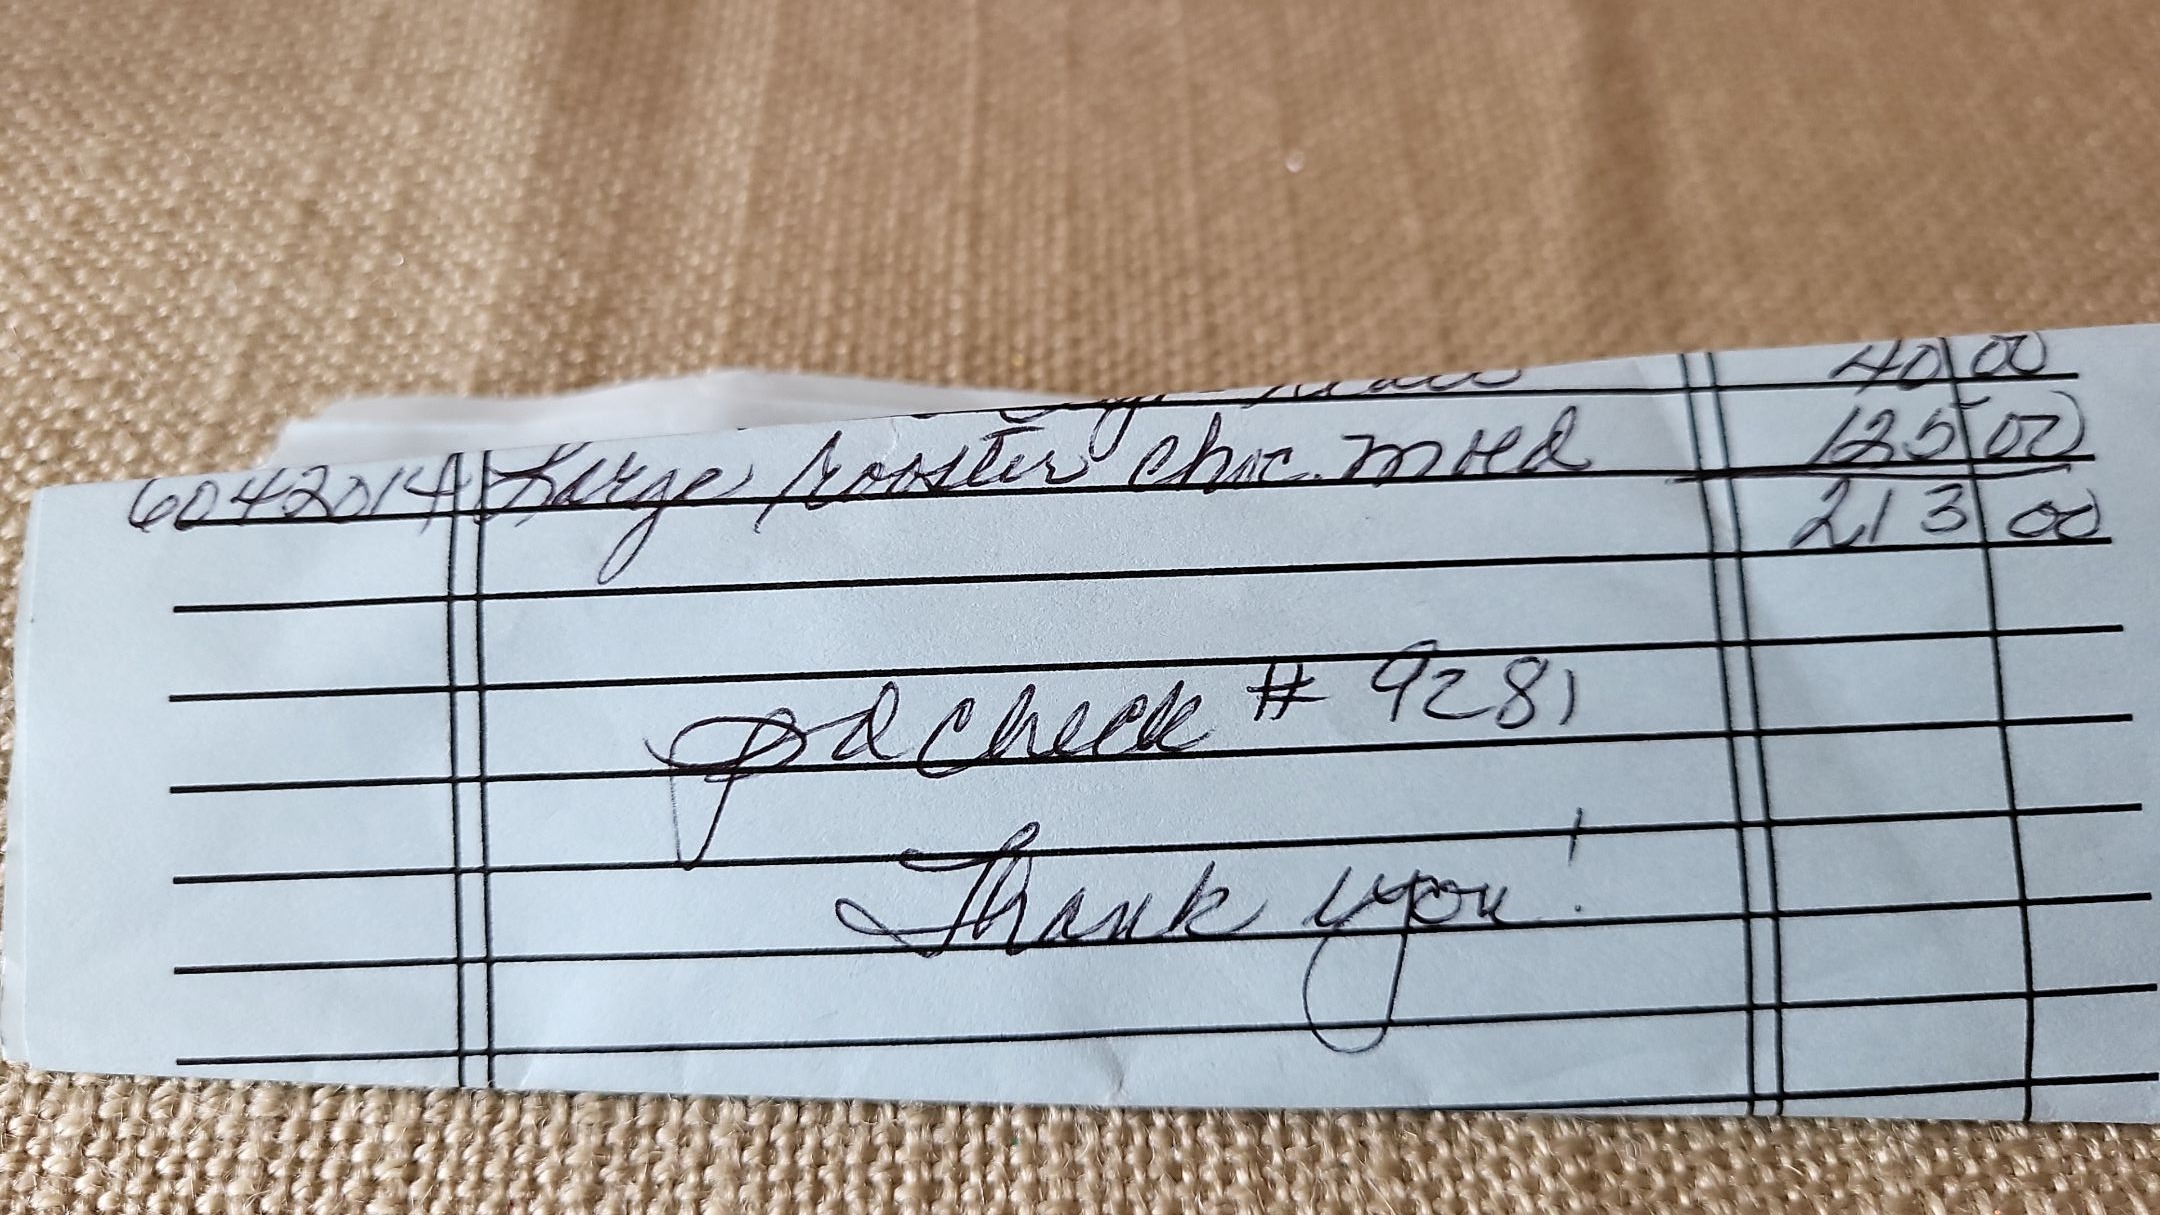 40 00
6042014 Large rooster choc. mold 125 00
213 00
pd check # 9281
Thank you!